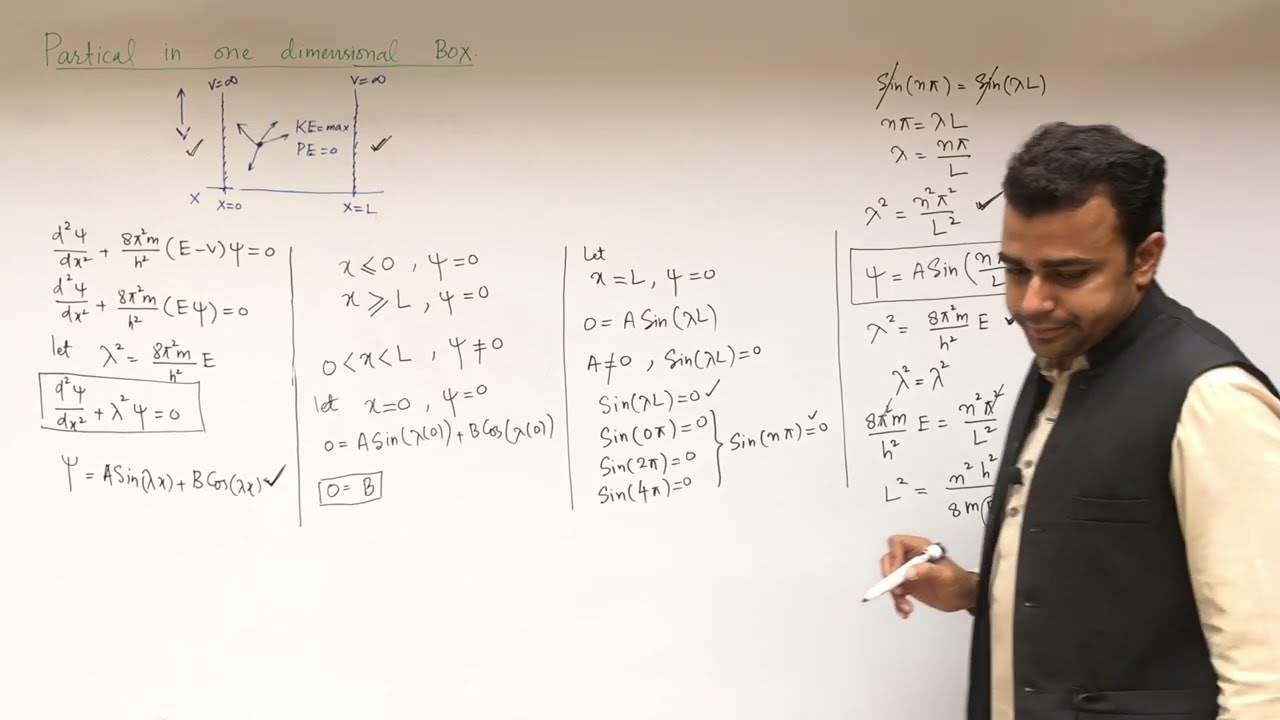 Partical in one dimensional Box.
V=∞ V=∞
V
KE=max
PE=0
X X=0 X=L
d²Ψ/dx² + 8π²m/h² (E-V)Ψ=0
d²Ψ/dx² + 8π²m/h² (EΨ)=0
let λ² = 8π²m/h² E
d²Ψ/dx² + λ²Ψ = 0
Ψ = ASin(λx) + BCos(λx) ✓
x ⩽ 0 , Ψ=0
x ⩾ L , Ψ=0
0 < x < L , Ψ ≠ 0
let x=0 , Ψ=0
0 = ASin(λ(0)) + BCos(λ(0))
0 = B
Let
x = L, Ψ=0
0 = A Sin(λL)
A≠0 , Sin(λL)=0
Sin(λL)=0 ✓
Sin(0π)=0
Sin(2π)=0 } Sin(nπ)=0 ✓
Sin(4π)=0
Sin(nπ) = Sin(λL)
nπ = λL
λ = nπ/L
λ² = n²π²/L² ✓
Ψ = ASin(
λ² = 8π²m/h² E
λ² = λ²
8π²m/h² E = n²π²/L²
L² = n²h²/8m(